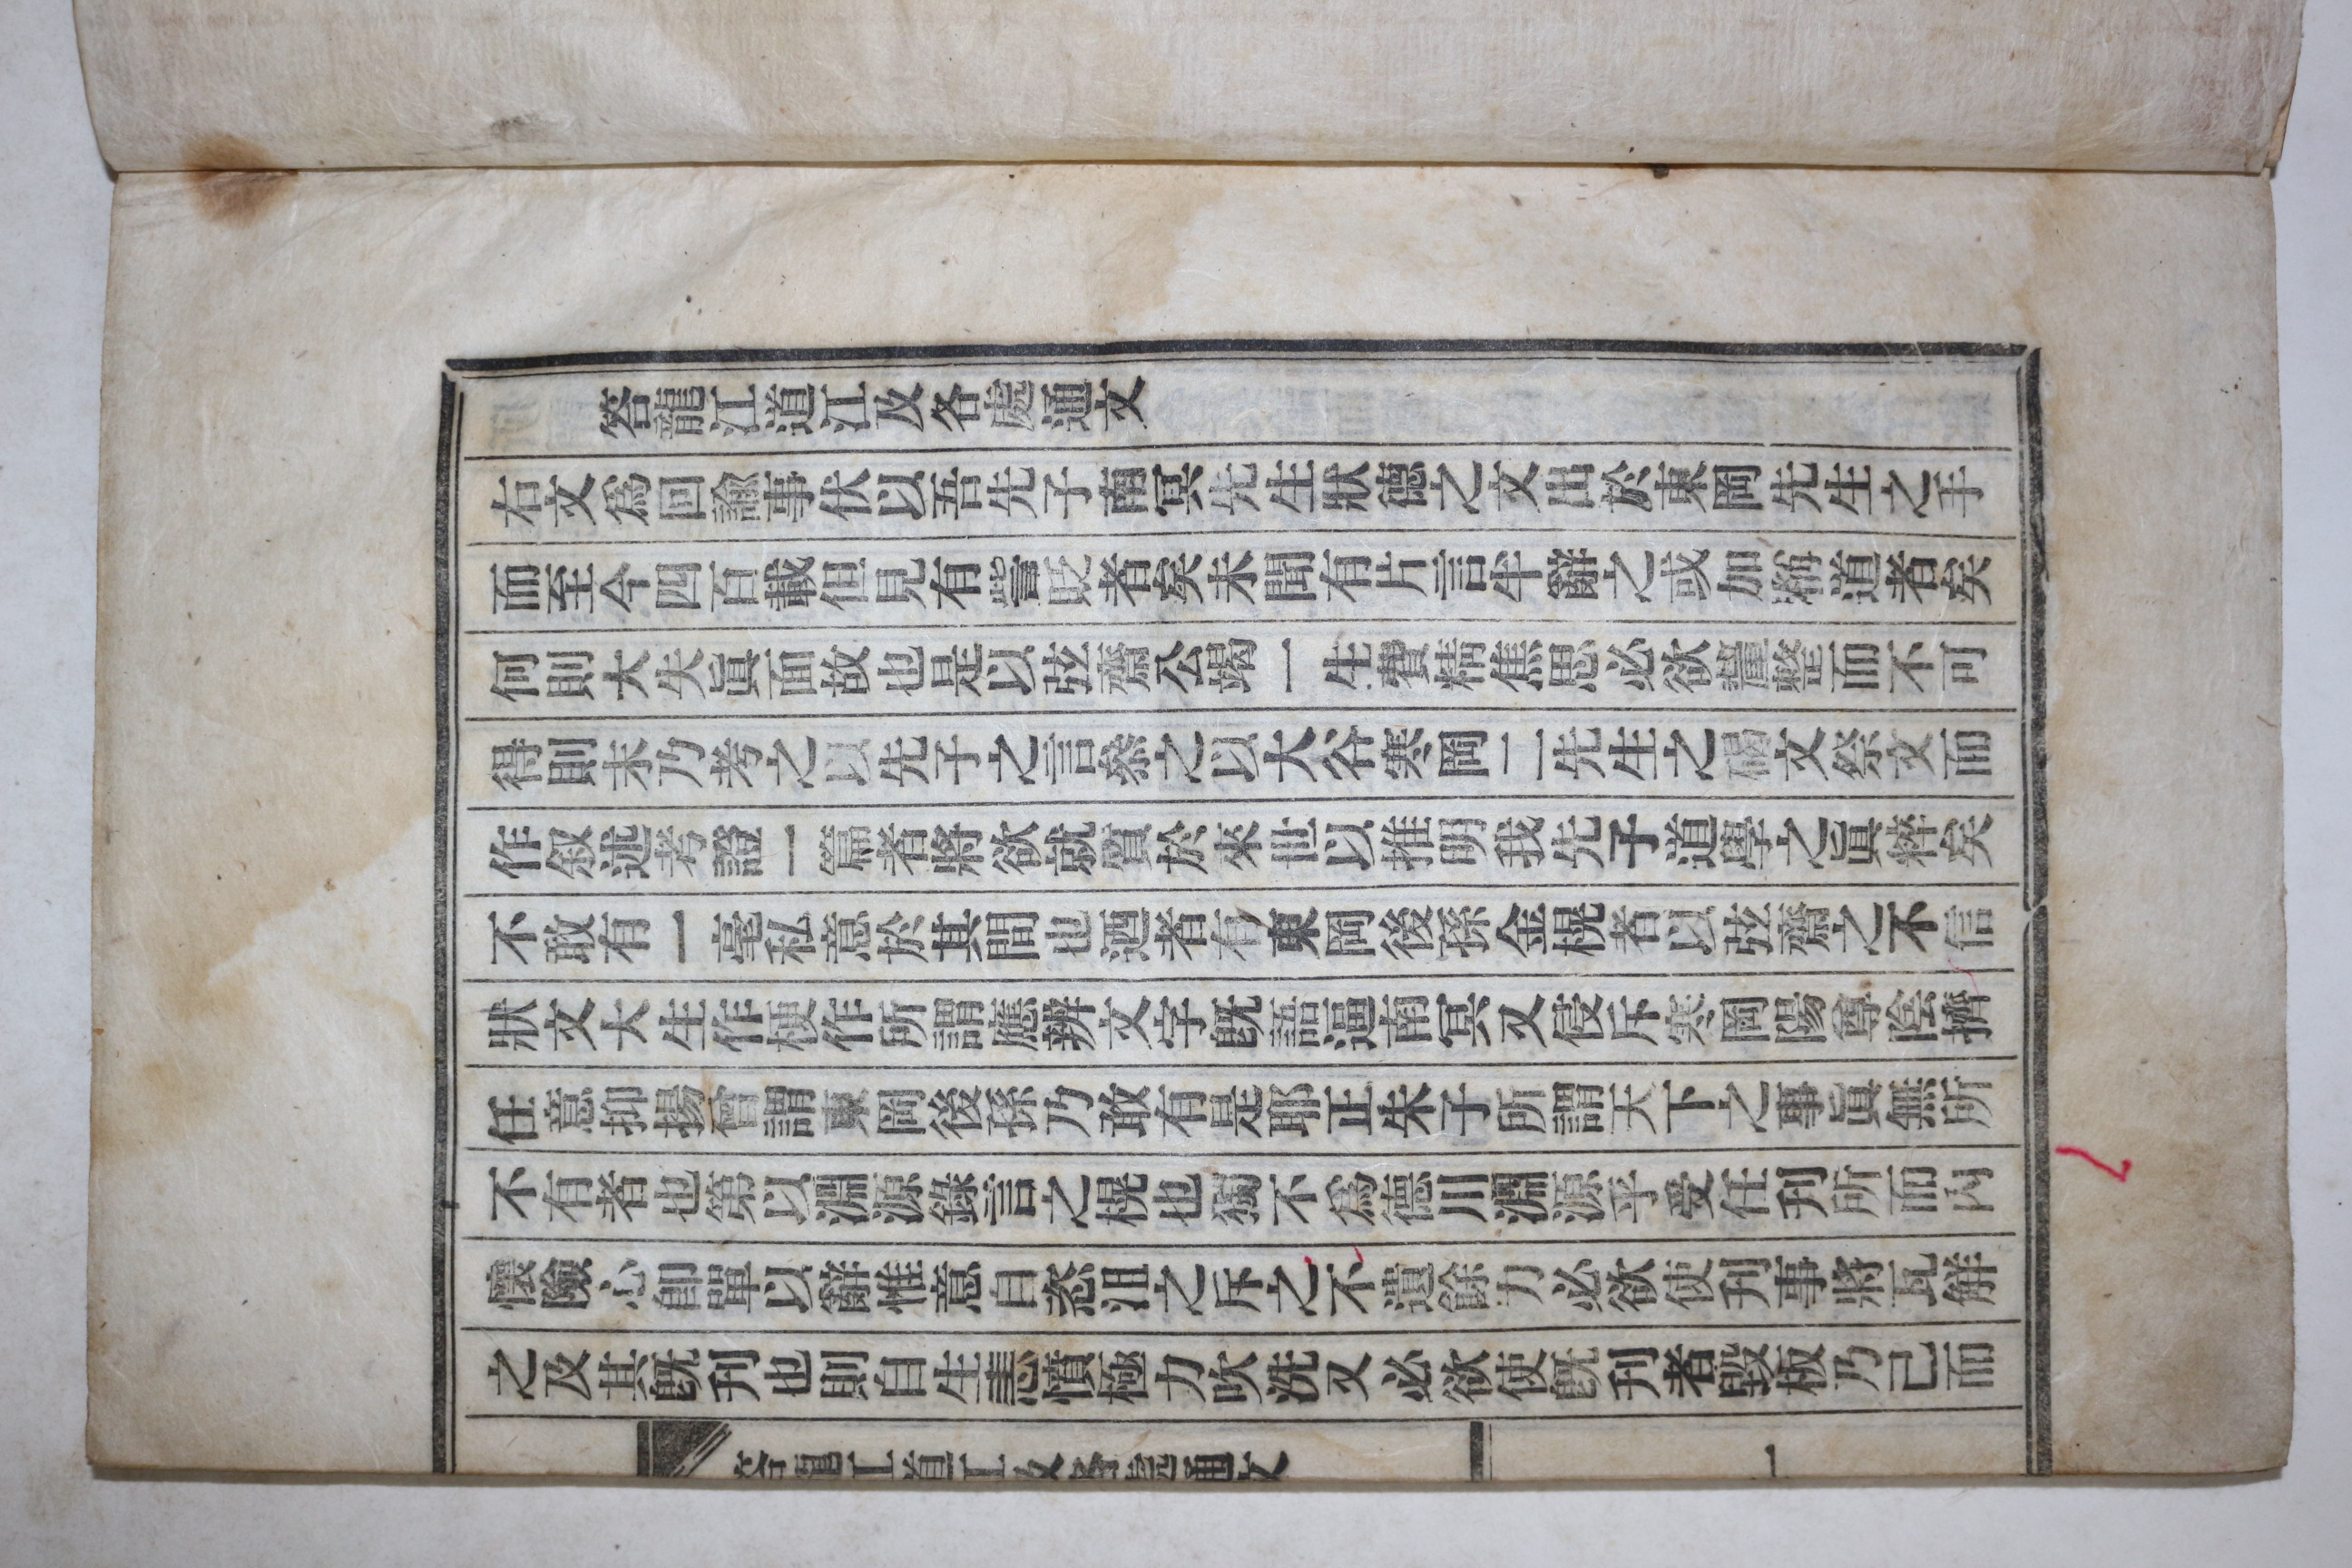 答龍江道江及各處通文
右文爲回諭事伏以吾先子南冥先生狀德之文出於東岡先生之手
而至今四百載但見有訾貶者矣未聞有片言半辭之或加稱道者矣
何則大失眞面故也是以弦齋公竭一生費精焦思必欲釐整而不可
得則末乃考之以先子之言叅之以大谷寒岡二先生之碣文祭文而
作叙述考證一篇者將欲就質於來世以推明我先子道學之眞粹矣
不敢有一毫私意於其間也迺者有東岡後孫金榥者以弦齋之不信
狀文大生作梗作所謂應辨文字旣語逼南冥又侵斥寒岡陽尊陰擠
任意抑揚曾謂東岡後孫乃敢有是耶正朱子所謂天下之事眞無所
不有者也第以淵源錄言之榥也獨不爲德川淵源乎受任刊所而內
懷險心卽單以辭惟意自恣沮之斥之不遺餘力必欲使刊事將瓦解
之及其旣刊也則自生恚憤極力吹洗又必欲使旣刊者毀板乃己而
答龍江道江及各處通文
一